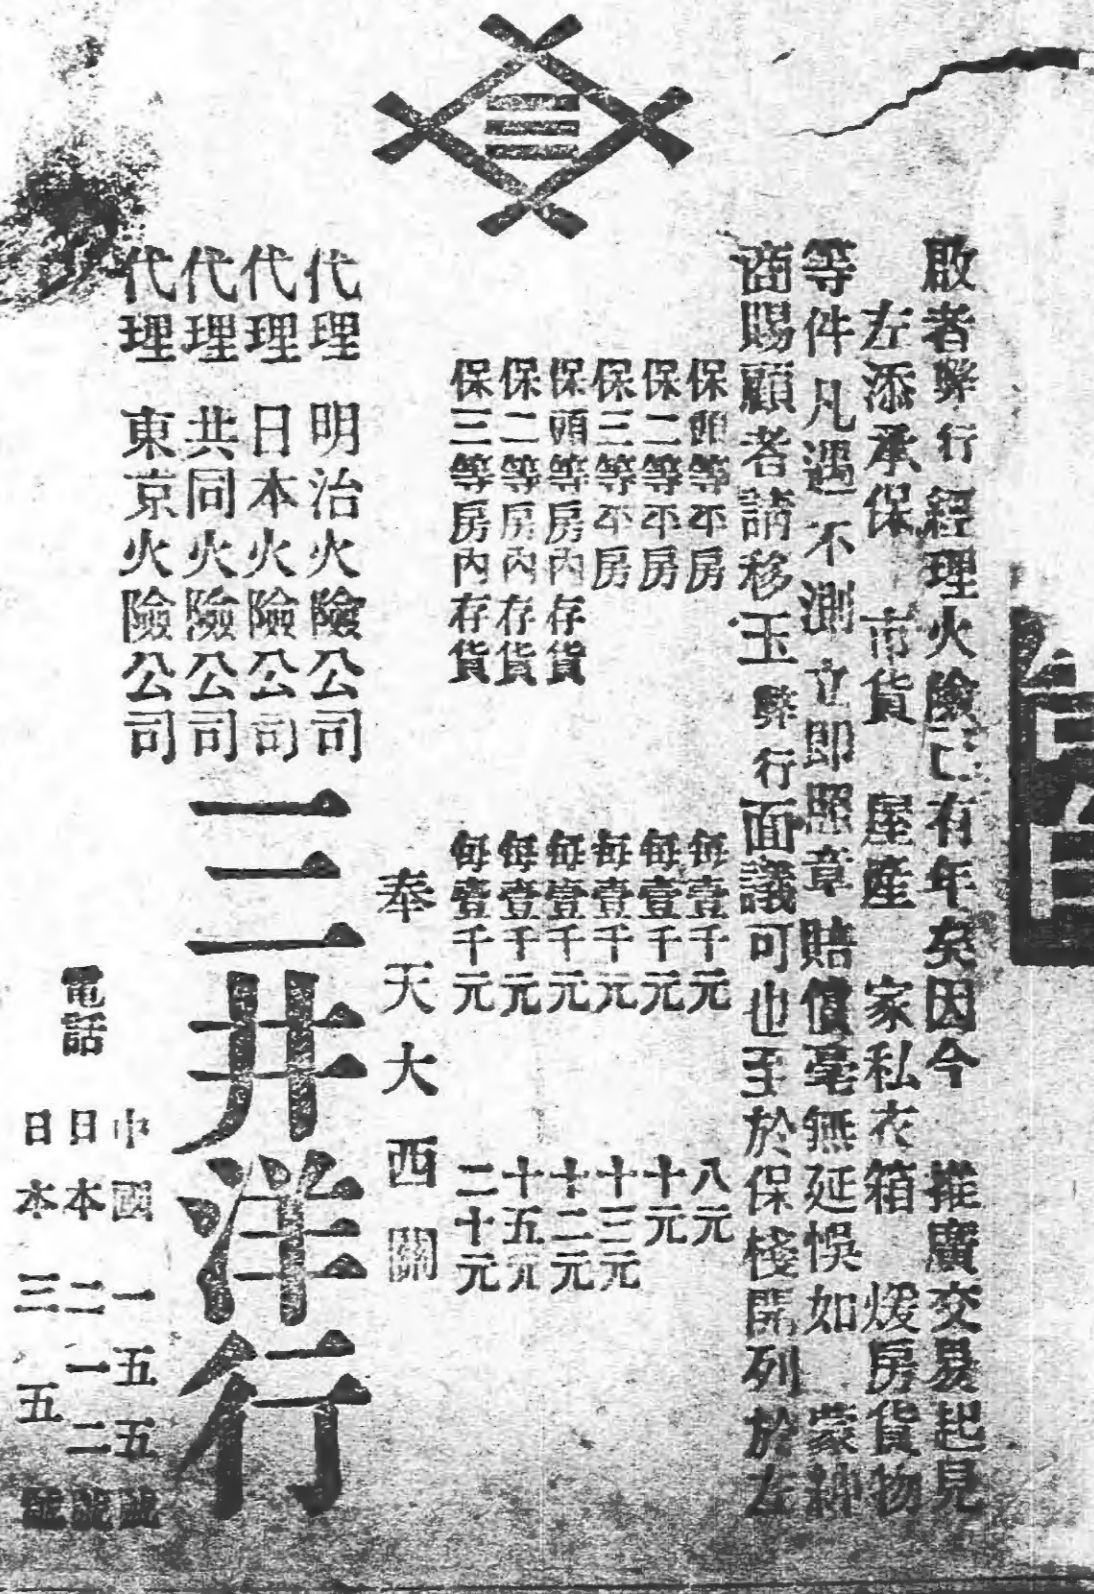 啟者弊行經理火險已有年矣因今 推廣交易起見
左添承保 市貨 屋產 家私衣箱 煖房貨物
等件凡遇不測立即照章賠償毫無延悞如 蒙紳
商賜顧者請移玉弊行面議可也至於保棧開列於左
保頭等平房 每壹千元 八元
保二等平房 每壹千元 十元
保三等平房 每壹千元 十三元
保頭等房內存貨 每壹千元 十二元
保二等房內存貨 每壹千元 十五元
保三等房內存貨 每壹千元 二十元
奉天大西關
代理 明治火險公司
代理 日本火險公司
代理 共同火險公司
代理 東京火險公司
三井洋行
電話
中國 一五五號
日本 二一二號
日本 三五號